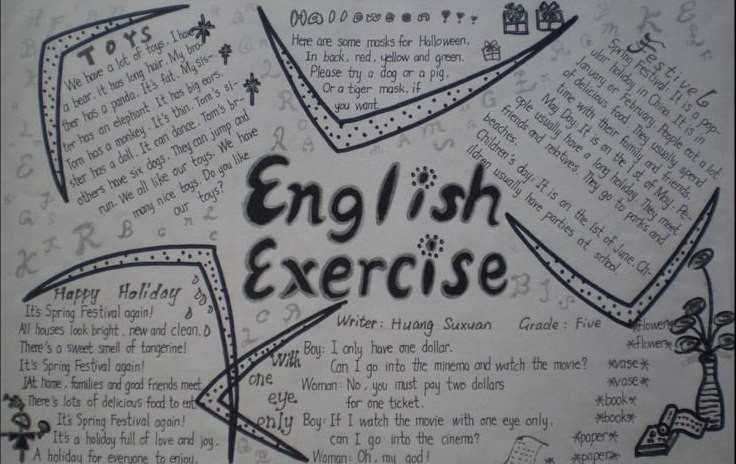 TOYS
We have a lot of toys. I have
a bear, it has long hair. My bro-
ther has a panda. It's fat. My sis-
ter has an elephant. It has big ears.
Tom has a monkey. It's thin. Tom's si-
ster has a doll. It can dance. Tom's br-
others have six dogs. They can jump and
run. We all like our toys. We have
many nice toys. Do you like
our toys?
Halloween ???
Here are some masks for Halloween,
In back, red, yellow and green.
Please try a dog or a pig,
Or a tiger mask, if
you want.
Festive
Spring Festival: It is a pop-
ular holiday in China. It is in
January or February. People eat a lot
of delicious food. They usually spend
time with their family and friends.
May Day: It is on the 1st of May. Pe-
ople usually have a long holiday. They meet
friends and relatives. They go to parks and
beaches.
Children's day: It is on the 1st of June. Ch-
ildren usually have parties at school.
English
Exercise
Happy Holiday
It's Spring Festival again!
All houses look bright, new and clean.
There's a sweet smell of tangerine!
It's Spring Festival again!
At home, families and good friends meet
There's lots of delicious food to eat
It's Spring Festival again!
It's a holiday full of love and joy.
A holiday for everyone to enjoy.
With
one
eye
only
Writer: Huang Suxuan Grade: Five
Boy: I only have one dollar.
Can I go into the minema and watch the movie?
Woman: No, you must pay two dollars
for one ticket.
Boy: If I watch the movie with one eye only,
can I go into the cinema?
Woman: Oh, my god!
*flower*
*flower*
*vase*
*vase*
*book*
*book*
*paper*
*paper*